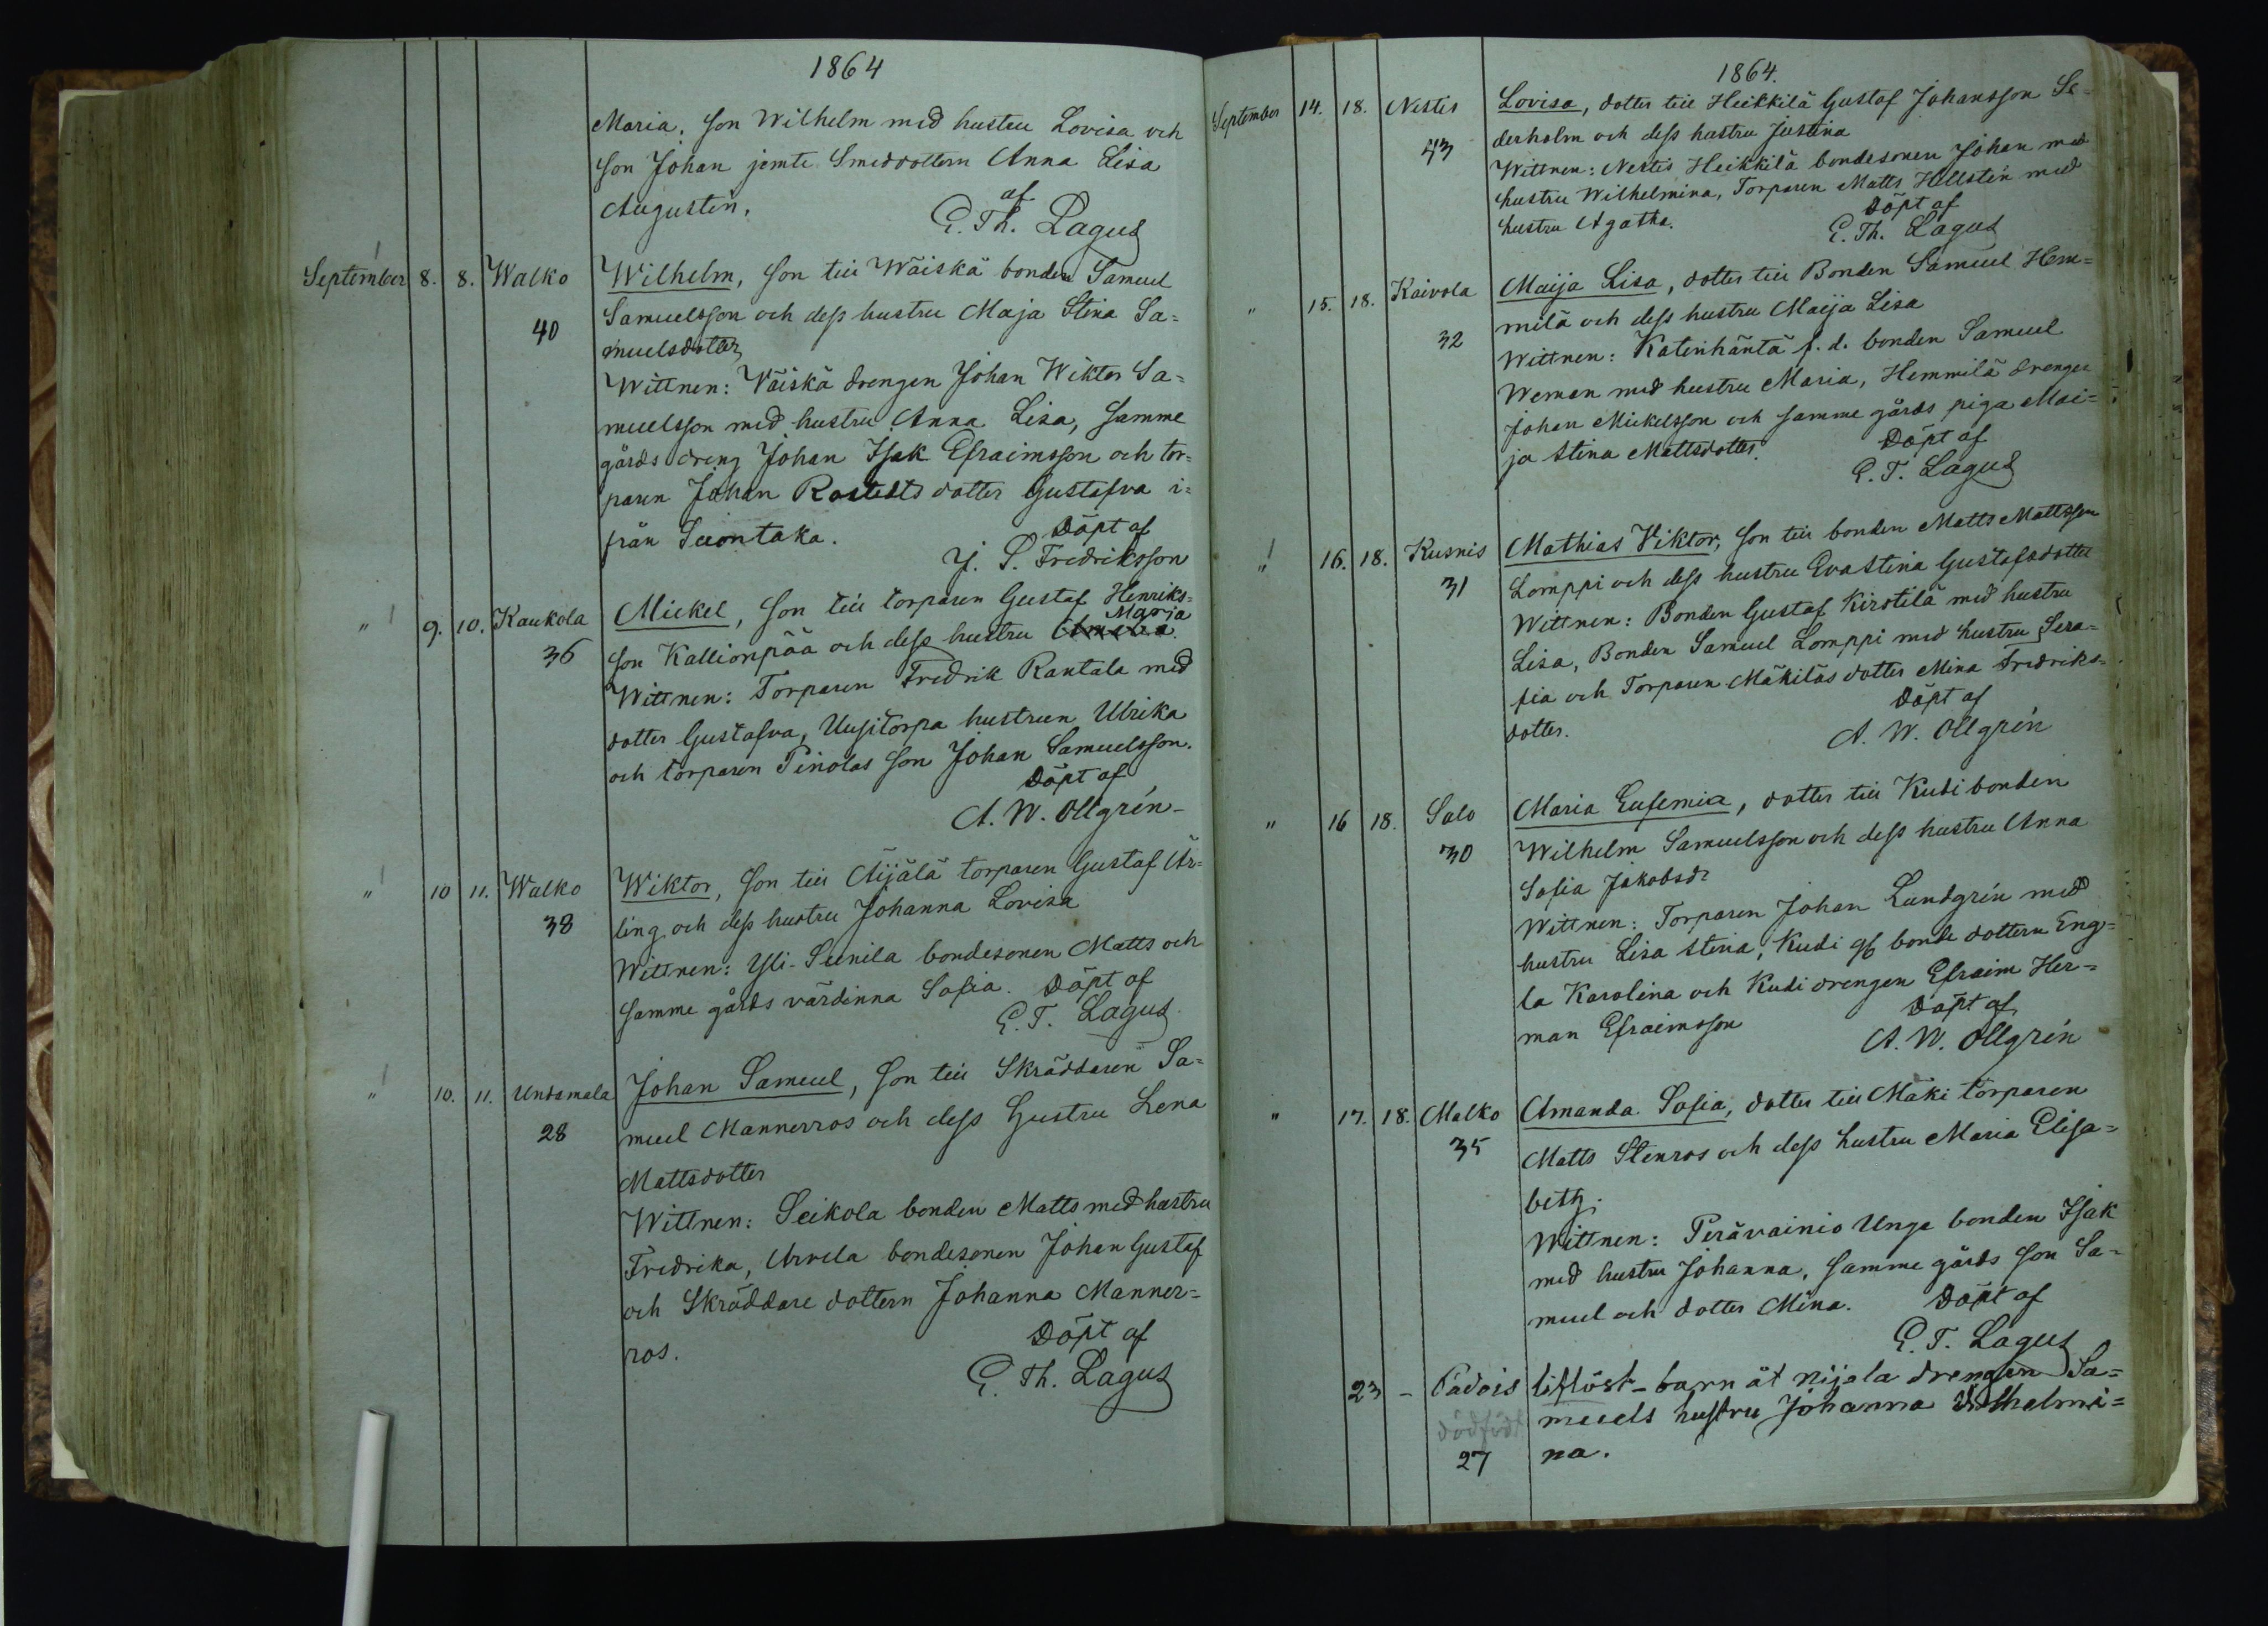 1864
Maria, son Wilhelm med hustru Lovisa och
son Johan jemte Smeddottern Anna Lisa
Augustin. af
E. Th. Lagus
September 8. 8. Walko Wilhelm, son till Wäiskä bonden Samuel
40 Samuelsson och dess hustru Maja Stina Sa=
muelsdotter
Wittnen: Väiskä drengen Johan Wiktor Sa=
muelsson med hustru Anna Lisa, samme
gårds dreng Johan Isak Efraimsson och tor=
paren Johan Rostedts dotter Gustafva i=
från Suontaka. Döpt af
J. P. Fredriksson
" 9. 10. Kaukola Mickel, son till torparen Gustaf Henriks=
36 son Kallionpää och dess hustru Maria
Wittnen: Torparen Fredrik Rantala med
dotter Gustafva, Uusitorpa hustrun Ulrika
och torparen Pinolas son Johan Samuelsson.
Döpt af
A. W. Ollgrén
" 10 11. Walko Wiktor, son till Äijälä torparen Gustaf Är=
38 ling och dess hustru Johanna Lovisa
Wittnen: Yli-Seunila bondesonen Matts och
samme gårds värdinna Sofia. Döpt af
E. T. Lagus
" 10. 11. Untamala Johan Samuel, son till Skräddaren Sa=
28 muel Mannerros och dess Hustru Lena
Mattsdotter
Wittnen: Seikola bonden Matts med hustru
Fredrika, Arvela bondesonen Johan Gustaf
och Skräddare dottern Johanna Manner=
ros. Döpt af
E. Th. Lagus
1864.
September 14. 18. Nestis Lovisa, dotter till Heikkilä Gustaf Johansson Se=
43 derholm och dess hustru Justina
Wittnen: Nestis Heikkilä bondesonen Johan med
hustru Wilhelmina, Torparen Matts Hellstén med
hustru Agatha. Döpt af
E. Th. Lagus
" 15. 18. Kaivola Maija Lisa, dotter till Bonden Samuel Hem=
32 milä och dess hustru Maija Lisa
Wittnen: Katinhäntä f. d. bonden Samuel
Weman med hustru Maria, Hemmilä drengen
Johan Mickelsson och samme gårds piga Mai=
ja Stina Mattsdotter. Döpt af
E. T. Lagus
" 16. 18. Kusnis Mathias Viktor, son till bonden Matts Mattsson
31 Lomppi och dess hustru Eva Stina Gustafsdotter
Wittnen: Bonden Gustaf Kirstilä med hustru
Lisa, Bonden Samuel Lomppi med hustru Sera=
fia och Torparen Mäkiläs dotter Mina Fredriks=
dotter. Döpt af
A. W. Ollgrén
" 16 18. Salo Maria Eufemia, dotter till Kudi bonden
30 Wilhelm Samuelsson och dess hustru Anna
Sofia Jakobsdr
Wittnen: Torparen Johan Lundgrén med
hustru Lisa Stina, Kudi gf bonde dottern Eng=
la Karolina och Kudi drengen Efraim Her=
man Efraimsson Döpt af
A. W. Ollgrén
" 17. 18. Malko Amanda Sofia, dotter till Mäki torparen
35 Matts Stenros och dess hustru Maria Elisa=
beth.
Wittnen: Perävainio Unga bonden Isak
med hustru Johanna, samme gårds son Sa=
muel och dotter Mina. Döpt af
E. T. Lagus
23 - Padois liflöst-barn åt nijala drengen Sa=
dödfödt muels hustru Johanna Wilhelmi=
27 na.